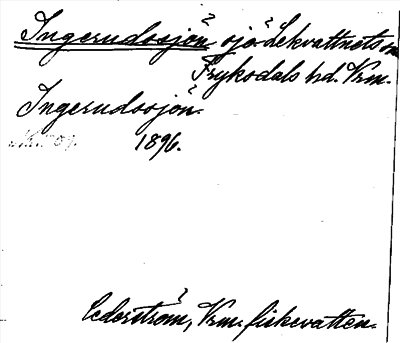 Ingerudssjön, sjö. Lekvattnets sn
Frykodals hd. Vrm.
Ingerudssjön.
1896.
Cederström, Vrm. fiskevatten.